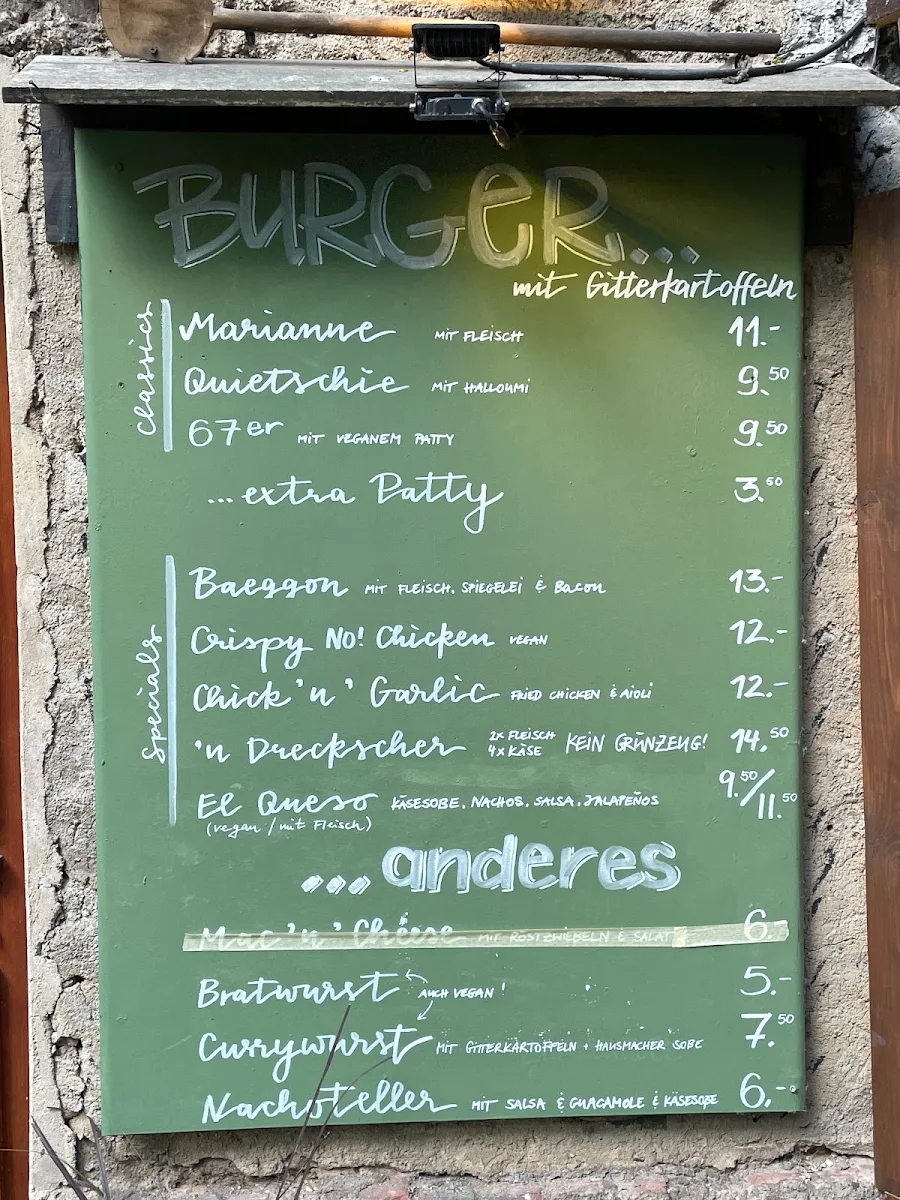 BURGER...
mit Gitterkartoffeln
Classics
Marianne MIT FLEISCH 11.-
Quietschie MIT HALLOUMI 9.50
67er MIT VEGANEM PATTY 9.50
...extra Patty 3.50
Specials
Baeggon MIT FLEISCH, SPIEGELEI & BACON 13.-
Crispy NO! Chicken VEGAN 12.-
Chick'n' Garlic FRIED CHICKEN & AIOLI 12.-
'n Dreckscher 2x FLEISCH 4x KÄSE KEIN GRÜNZEUG! 14.50
El Queso KÄSESOßE, NACHOS, SALSA, JALAPEÑOS 9.50/11.50
(vegan / mit Fleisch)
...anderes
Mac'n'Cheese MIT RÖSTZWIEBELN & SALAT 6.
Bratwurst AUCH VEGAN! 5.-
Currywurst MIT GITTERKARTOFFELN + HAUSMACHER SOßE 7.50
Nachoteller MIT SALSA & GUACAMOLE & KÄSESOßE 6.-